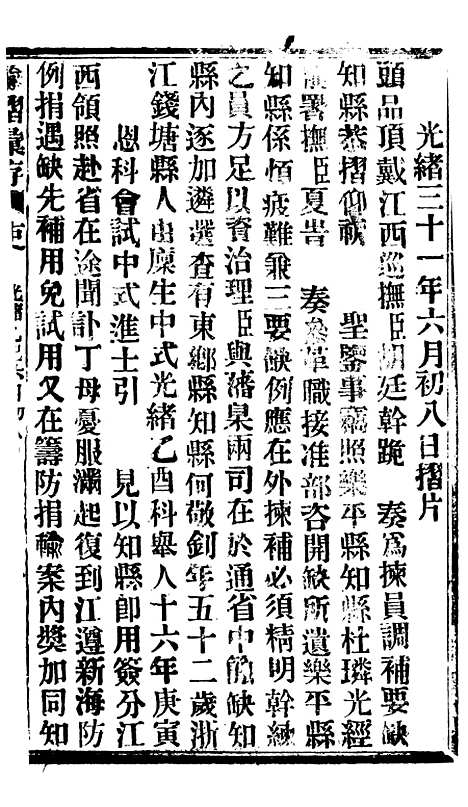 光緒三十一年六月初八日摺片
頭品頂戴江西巡撫臣胡廷幹跪 奏為揀員調補要缺
知縣恭摺仰祈 聖鑒事竊照樂平縣知縣杜璘光經
前署撫臣夏旹 奏叅革職接准部咨開缺所遺樂平縣
知縣係煩疲難兼三要缺例應在外揀補必須精明幹練
之員方足以資治理臣與藩臬兩司在於通省中簡缺知
縣內逐加遴選查有東鄉縣知縣何敬釗年五十二歲浙
江錢塘縣人由廩生中式光緒乙酉科舉人十六年庚寅
恩科會試中式進士引 見以知縣即用簽分江
西領照赴省在途聞訃丁母憂服滿起復到江遵新海防
例捐遇缺先補用免試用又在籌防捐輸案內奬加同知
摺彙存